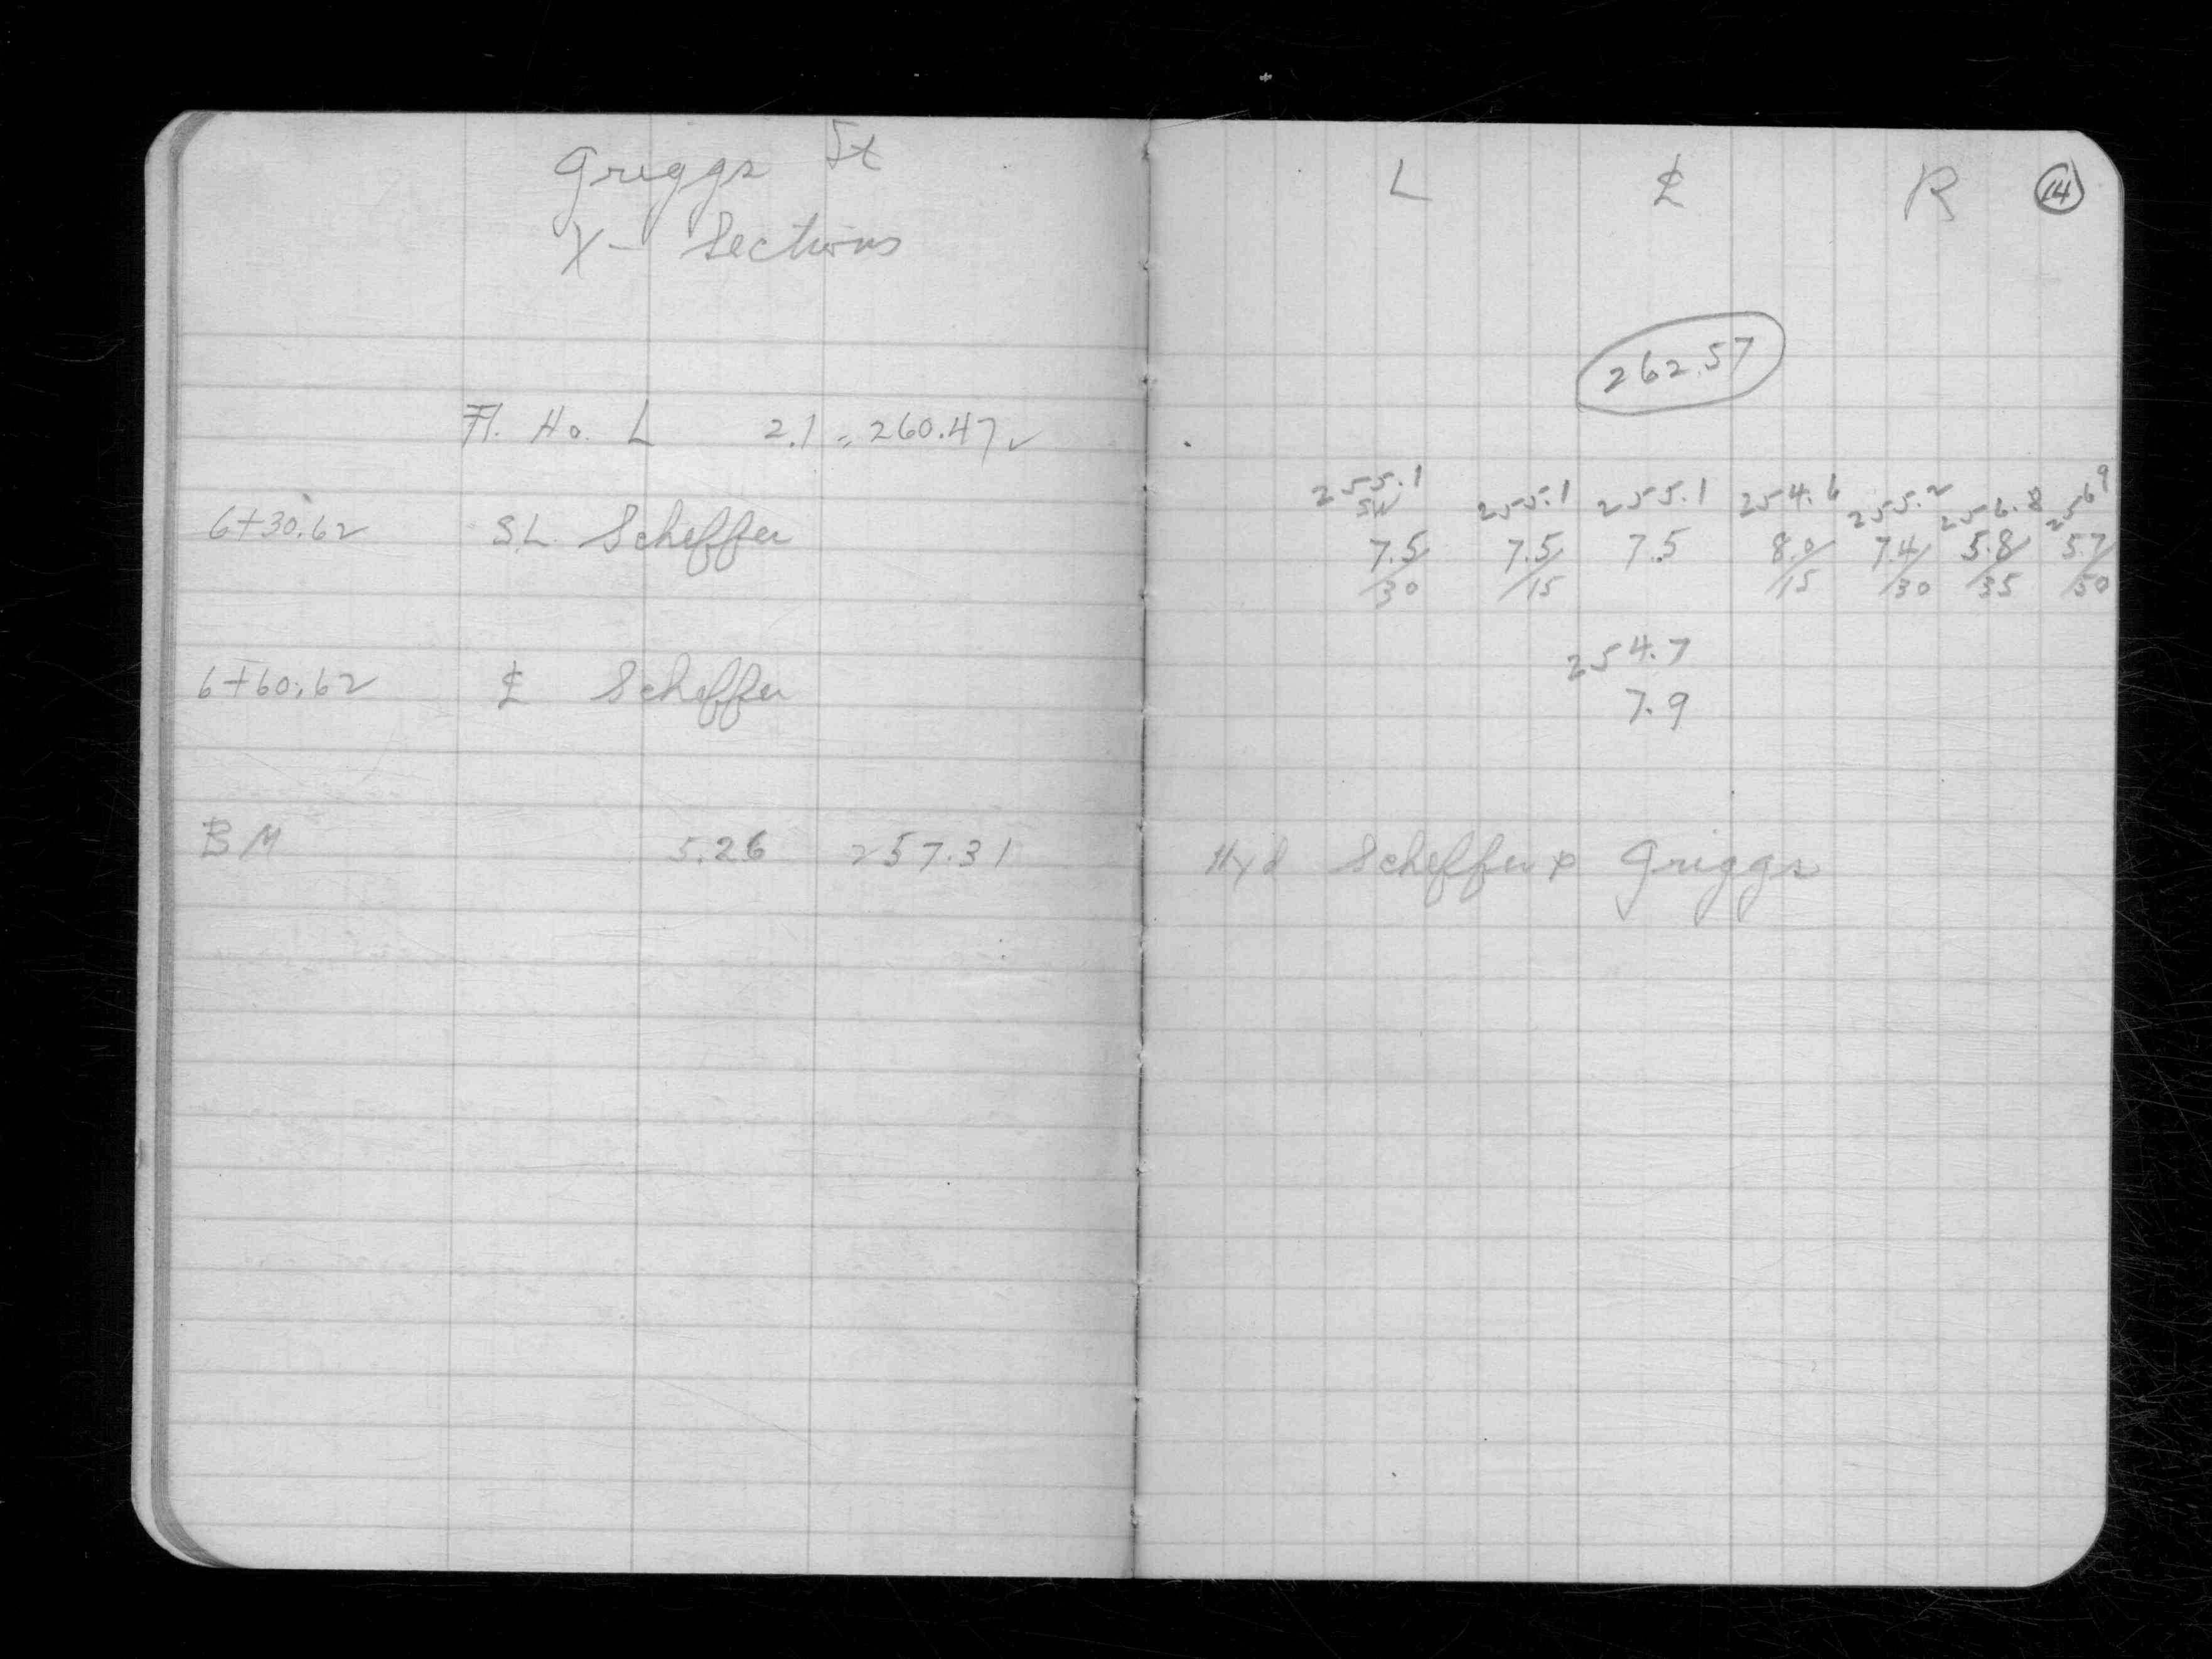 Griggs St
X- Sections
L ℄ R 14
262.57
Fl. Ho. L 2.1 = 260.47 ✓
255.1 255.1 255.1 254.6 255.2 256.8 256.9
SW
6+30.62 S.L. Scheffer 7.5/30 7.5/15 7.5 8.0/15 7.4/30 5.8/35 5.7/50
254.7
6+60.62 ℄ Scheffer 7.9
BM 5.26 257.31 Hyd Scheffer & Griggs